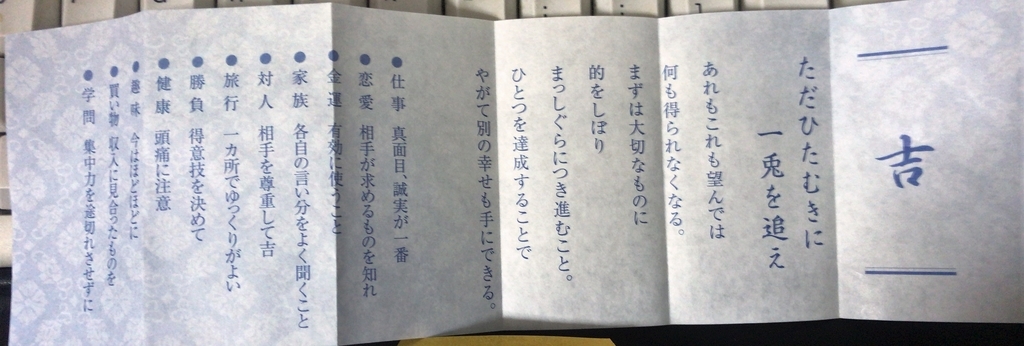 吉
ただひたむきに
一兎を追え
あれもこれも望んでは
何も得られなくなる。
まずは大切なものに
的をしぼり
まっしぐらにつき進むこと。
ひとつを達成することで
やがて別の幸せも手にできる。
●仕事 真面目、誠実が一番
●恋愛 相手が求めるものを知れ
●金運 有効に使うこと
●家族 各自の言い分をよく聞くこと
●対人 相手を尊重して吉
●旅行 一カ所でゆっくりがよい
●勝負 得意技を決めて
●健康 頭痛に注意
●趣味 今はほどほどに
●買い物 収入に見合ったものを
●学問 集中力を途切れさせずに